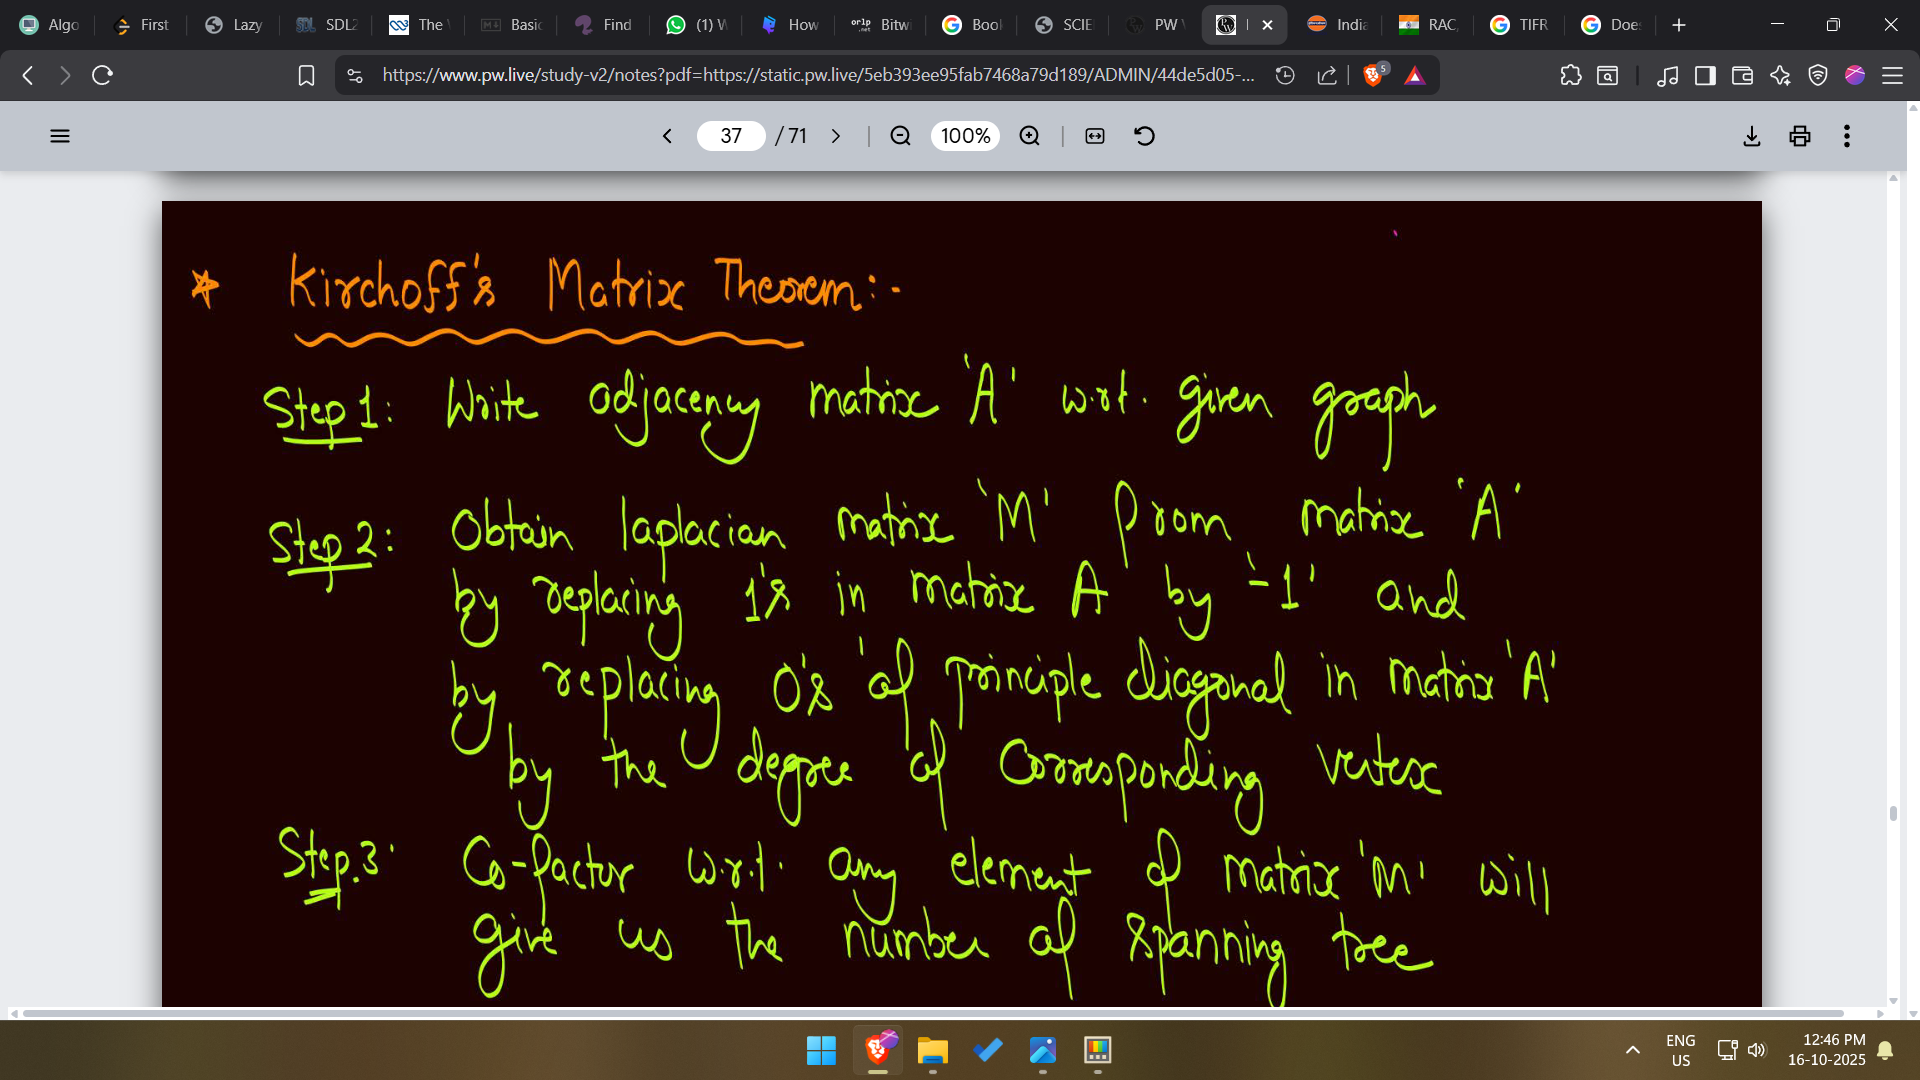 Algo
First
Lazy
SDL2
The
Basic
Find
(1) W
How
Bitw
Book
SCIE
PW
India
RAC,
TIFR
Does
https://www.pw.live/study-v2/notes?pdf=https://static.pw.live/5eb393ee95fab7468a79d189/ADMIN/44de5d05-...
5
37 / 71
100%
* Kirchoff's Matrix Theorem:-
Step 1: Write adjacency matrix 'A' w.r.t. given graph
Step 2: Obtain laplacian matrix 'M' from matrix 'A'
by replacing 1's in matrix A by '-1' and
by replacing 0's of principle diagonal in matrix 'A'
by the degree of corresponding vertex
Step.3: Co-factor w.r.t. any element of matrix 'M' will
give us the number of spanning tree
ENG
US
12:46 PM
16-10-2025